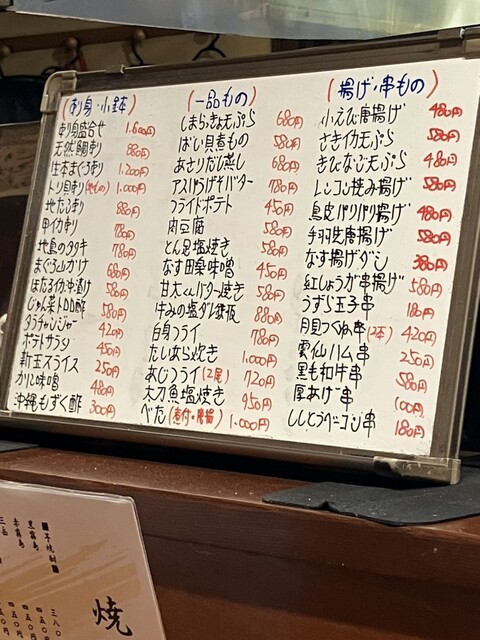 (刺身・小鉢)
刺身盛合せ 1.600円
天然鯛刺 880円
生本まぐろ刺 1.200円
トリ貝刺 1.000円
地だこ刺 880円
甲イカ刺 780円
地鳥のタタキ 780円
まぐろ山かけ 680円
ほたるイカ沖漬け 580円
じゅん菜トロロ酢 580円
タラチャンジャー 420円
ポテトサラダ 450円
新玉スライス 250円
かに味噌 480円
沖縄もずく酢 300円
(一品もの)
しまらっきょ天ぷら 680円
ばい貝煮もの 580円
あさりだし蒸し 680円
アスパラげそバター 780円
フライドポテト 450円
肉豆腐 580円
とん足塩焼き 580円
なす田楽味噌 450円
甘太くんバター焼き 580円
はみの塩ダレ鉄板 880円
白身フライ 780円
たいあら炊き 1.000円
あじフライ(2尾) 720円
太刀魚塩焼き 950円
べた(煮付・唐揚) 1.000円
(揚げ・串もの)
小えび唐揚げ 480円
さきイカ天ぷら 580円
きびなご天ぷら 480円
レンコン挟み揚げ 580円
鳥皮パリパリ揚げ 480円
手羽先唐揚げ 580円
なす揚げダシ 380円
紅しょうが串揚げ 580円
うずら玉子串 180円
月見つくね串(2本) 420円
雲仙ハム串 250円
黒毛和牛串 580円
厚あげ串 100円
ししとうベーコン串 180円
焼
■芋焼酎■
黒霧島 四五〇円
赤霧島 四五〇円
三岳
三八〇